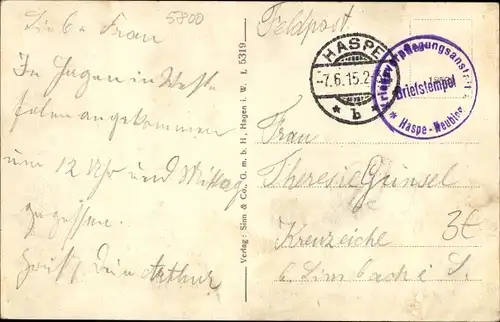 5800
Liebe Frau
In Hagen in West-
falen angekommen
um 12 Uhr und Mittag
gegessen.
Gruß Dein Arthur
Verlag: Sinn & Co., G. m. b. H., Hagen i. W. L 5319
Feldpost
HASPE
-7.6.15.2-
* b *
Kriegsverpflegungsanstalt
Briefstempel
* Haspe-Heubing *
Frau
Therese Günsel
Kreuzeiche
b. Limbach i. S.
3E